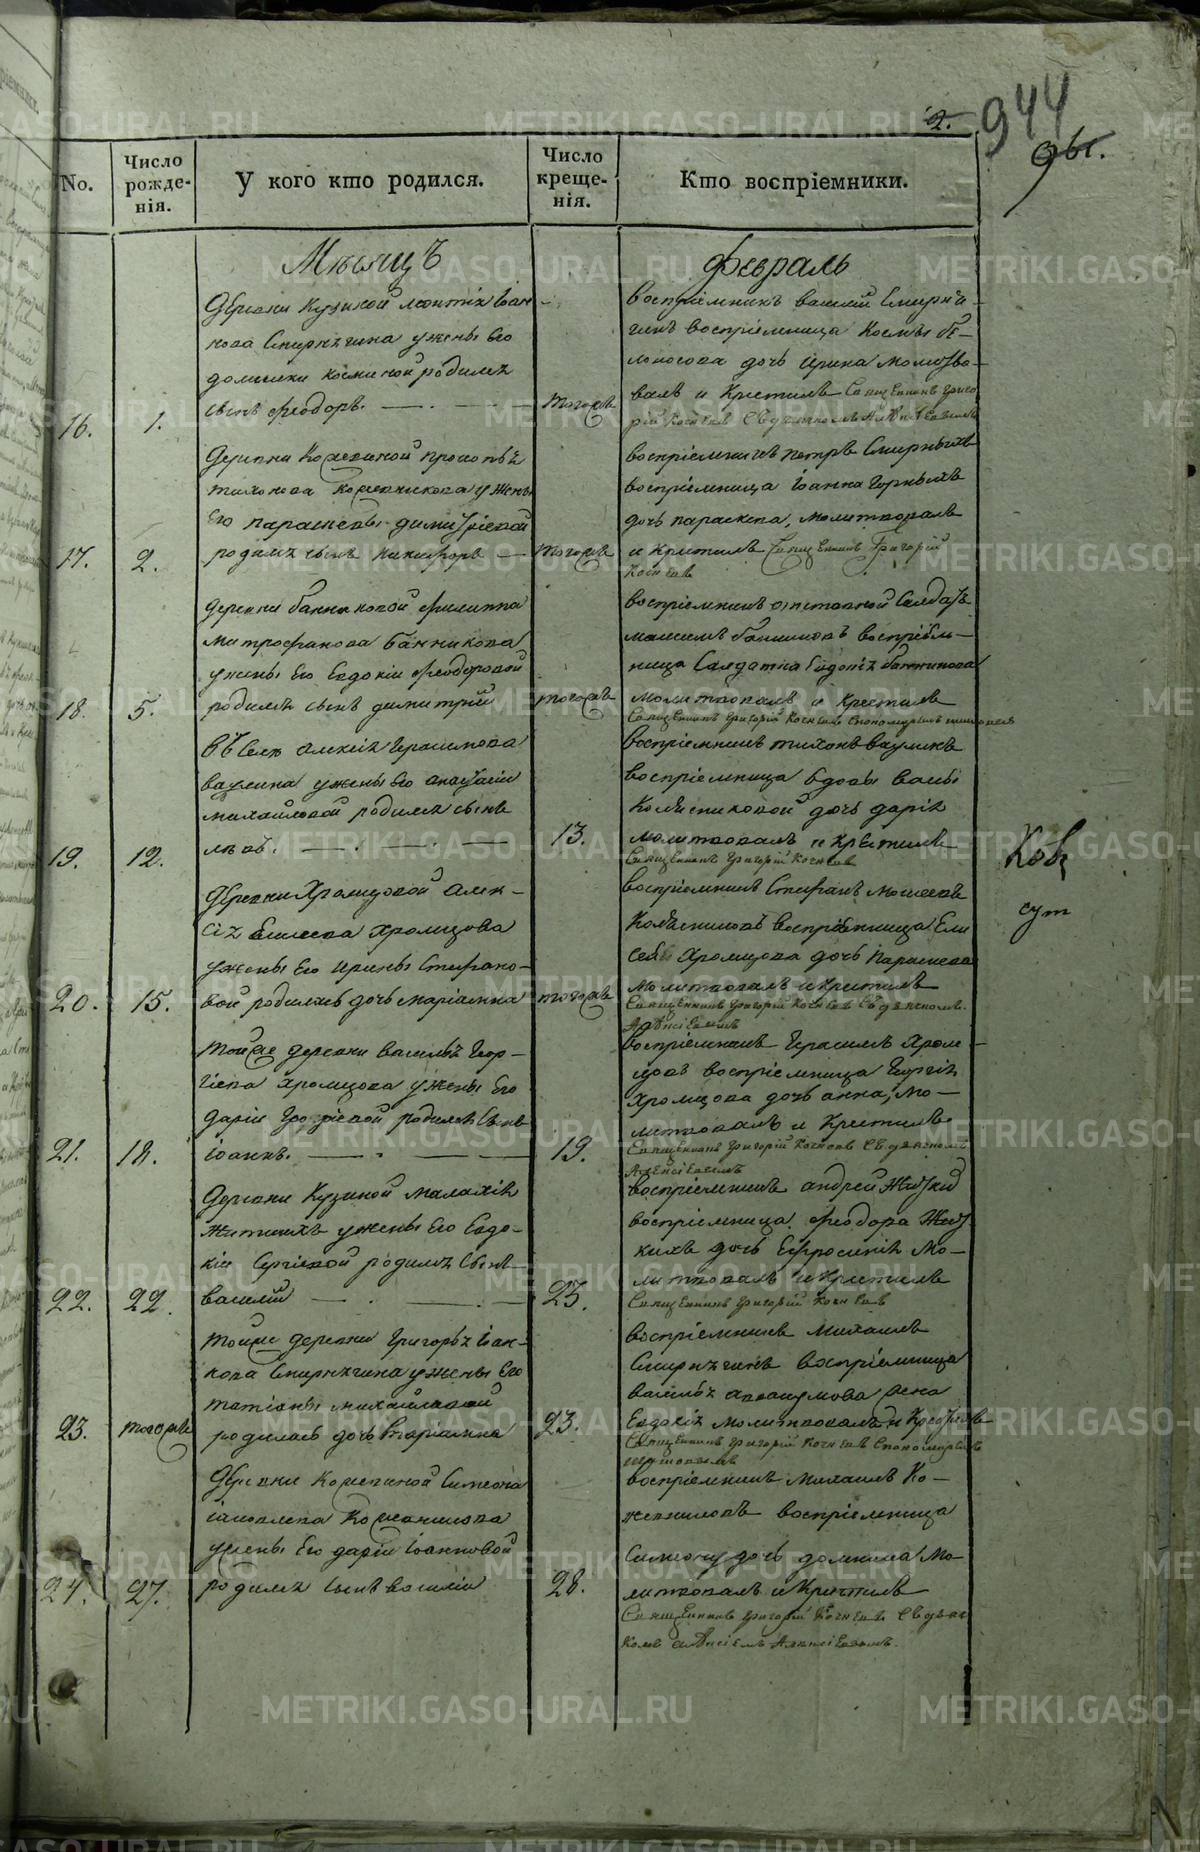 2.
944
961.
No.
Число рожде-нія.
У кого кто родился.
Число креще-нія.
Кто воспріемники.
Мѣсяцъ
Февраль
16.
1.
Деревни Кузиной Леонтія Іоан-
нова Смирнягина у жены его
домники косминой родился
сынъ Феодоръ.
тогожъ
Воспріемникъ василій Смирня-
гинъ воспріемница Космы бѣ-
лоносова дочь Ирина молитво-
валъ и Крестилъ Священникъ Григо
рій Кочневъ
17.
2.
Деревни Кожевиной прокопья
тихонова Кожевникова у жены
Его параскевы димитріевой
родился сынъ никифоръ
тогожъ
воспріемникъ петръ Смирныхъ
воспріемница Іоанна Горныхъ
дочь параскева, молитвовалъ
и крестилъ Священникъ Григорій
Кочневъ
18.
5.
деревни банниковой филиппа
митрофанова банникова
у жены Его Евдокіи Феодоровой
родился сынъ димитрій
тогожъ
воспріемникъ отставной Салдатъ
максимъ воспріем-
ница Салдатка банникова
молитвовалъ и Крестилъ
Священникъ Григорій Кочневъ
19.
12.
въ Селѣ алексія Герасимова
ваулина у жены Его анастасіи
михайловой родился сынъ
левъ.
13.
воспріемникъ тихонъ ваулинъ
воспріемница вдовы
Колѣсниковой дочь дарія
молитвовалъ и Крестилъ
Священникъ Григорій Кочневъ
20.
15.
Деревни Хромцовой Алек-
сія Елисеева Хромцова
у жены Его Ирины Стефано-
вой родилась дочь маріамна
тогожъ
воспріемникъ Стефанъ Моисеевъ
Колѣсниковъ воспріемница Ели
сея Хромцова дочь Параскева
молитвовалъ и крестилъ
Священникъ Григорій Кочневъ Съ дьякономъ
21.
18.
тойже деревни василья Геор-
гіева Хромцова у жены Его
даріи Георгіевой родился сынъ
іоаннъ.
19.
воспріемникъ Герасимъ Хром-
цовъ воспріемница Георгія
Хромцова дочь анна, мо-
литвовалъ и Крестилъ
Священникъ Григорій Кочневъ Съ дьякономъ
22.
22.
Деревни Кузиной малахія
Житкихъ у жены Его Евдо-
кіи Сергіевой родился Сынъ
василій
23.
воспріемникъ андрей Житкій
воспріемница феодора Жит
кихъ дочь Ефросинія Мо-
литвовалъ и Крестилъ
Священникъ Григорій Кочневъ
23.
тогожъ
тойже деревни Григорья Іоан-
нова Смирнягина у жены Его
татіаны михайловой
родилась дочь маріамна
23.
воспріемникъ михаилъ
Смирнягинъ воспріемница
василья аввакумова жена
Евдокія молитвовалъ и Крестилъ
Священникъ Григорій Кочневъ
24.
27.
Деревни Кожевиной Симеона
іаковлева Кожевникова
у жены Его даріи іоанновой
родился сынъ василій
28.
воспріемникъ михаилъ Ко-
жевниковъ воспріемница
дочь домника Мо-
литвовалъ и Крестилъ
Священникъ Григорій Кочневъ Съ дьяко
номъ
METRIKI.GASO-URAL.RU